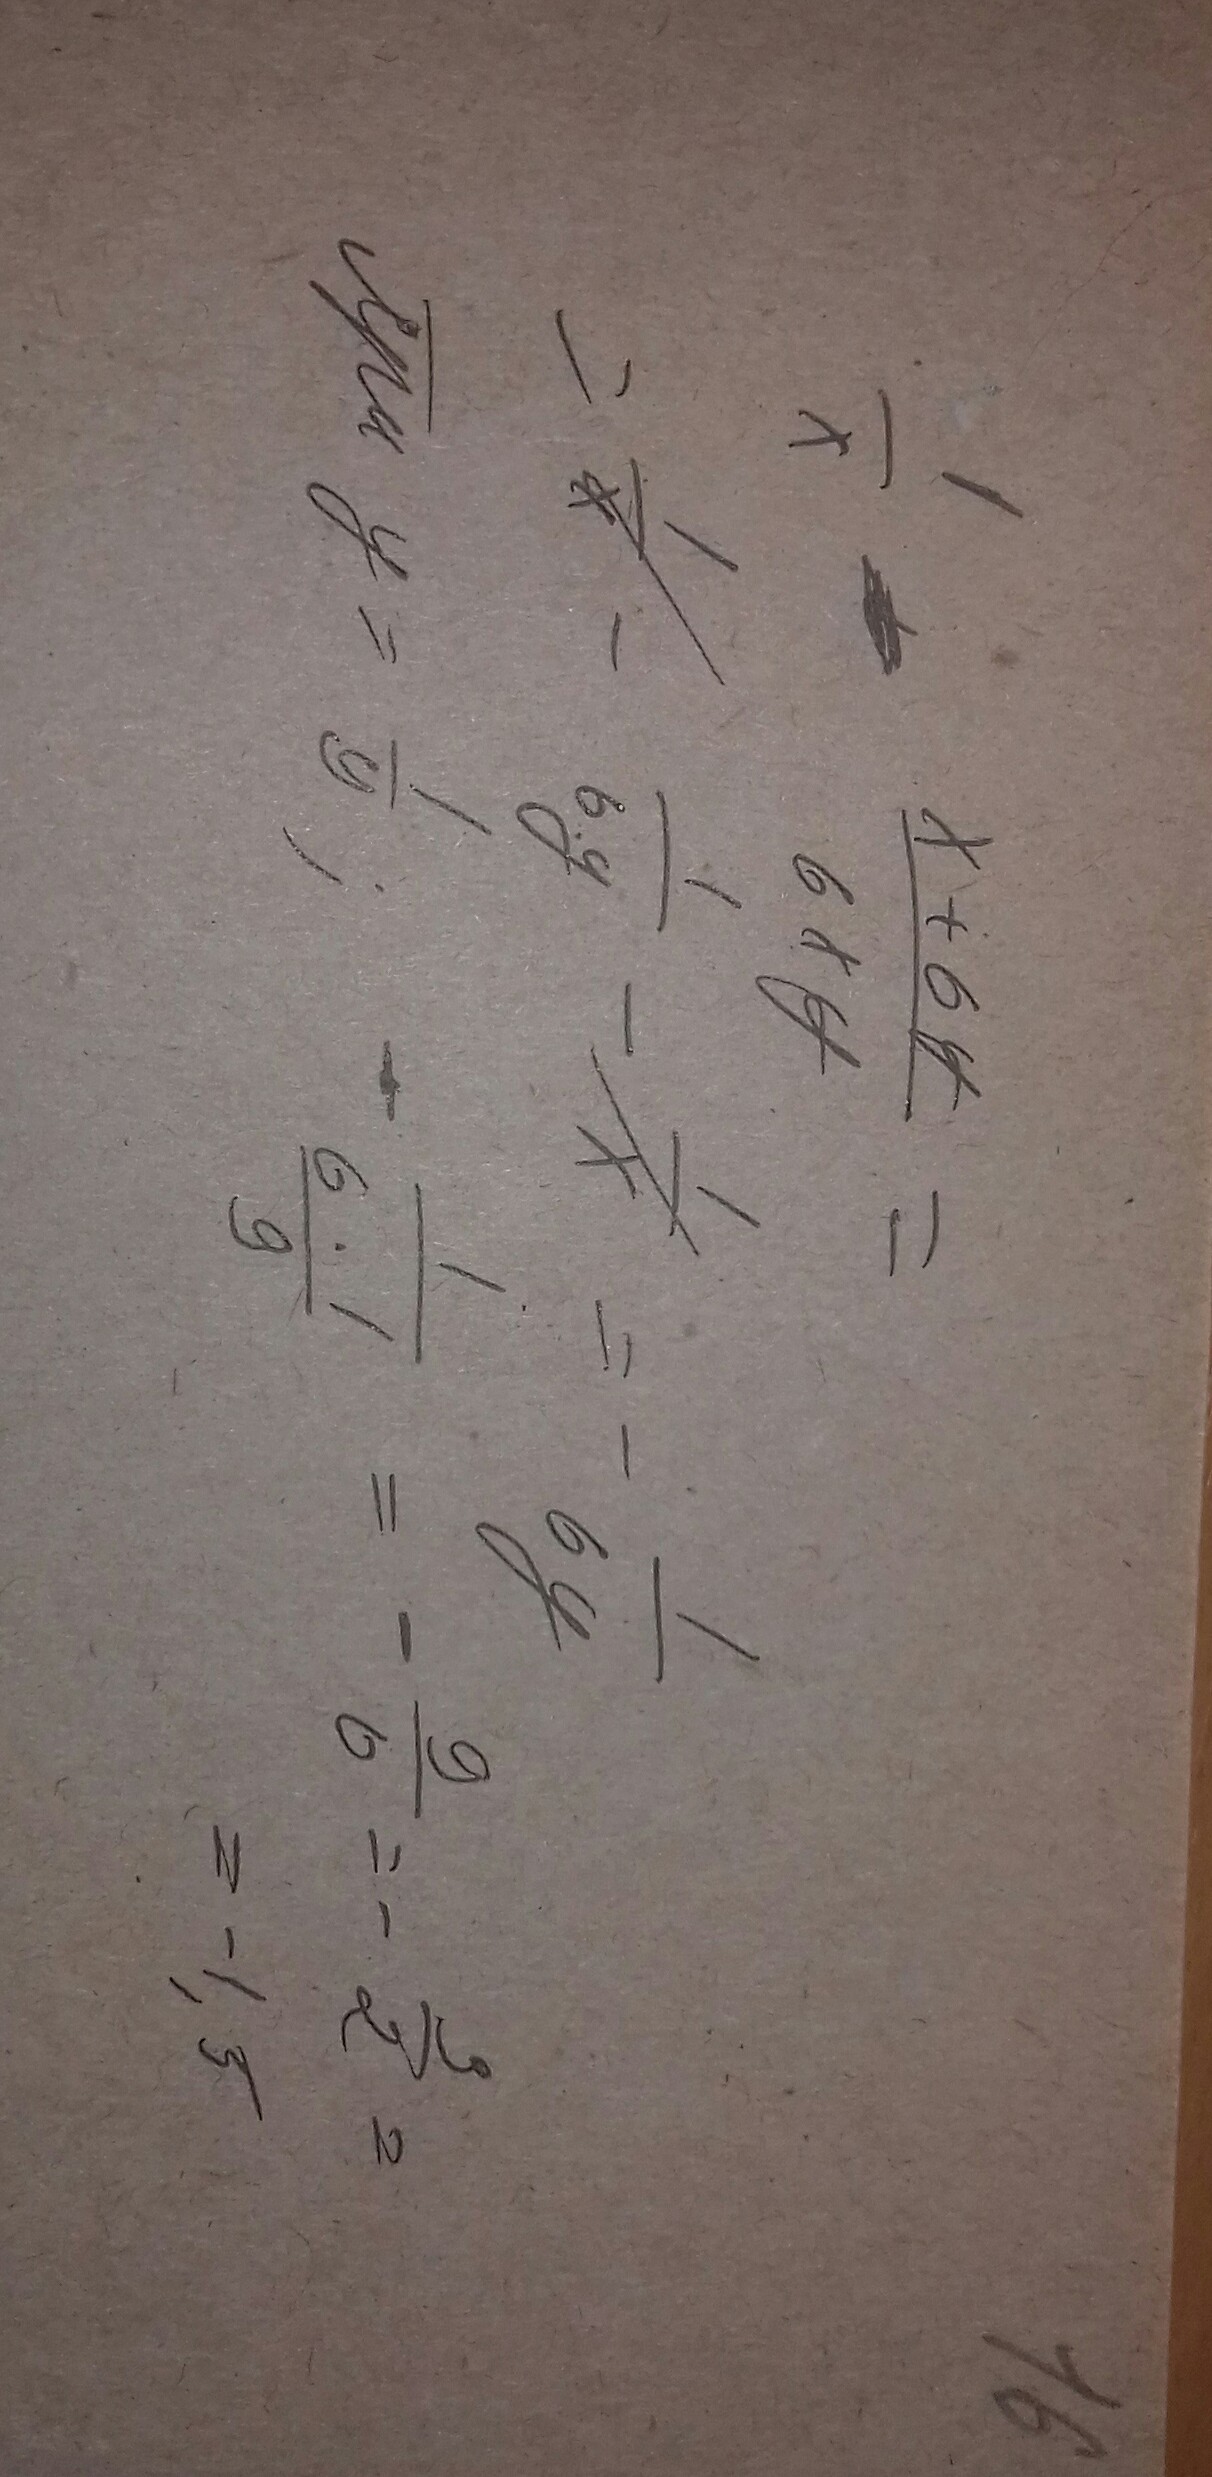 16
1/x - (x+6y)/(6xy) =
= 1/x - 1/(6y) - 1/x = - 1/(6y)
при y = 1/9; - 1/(6·1/9) = - 9/6 = - 3/2 =
= -1,5